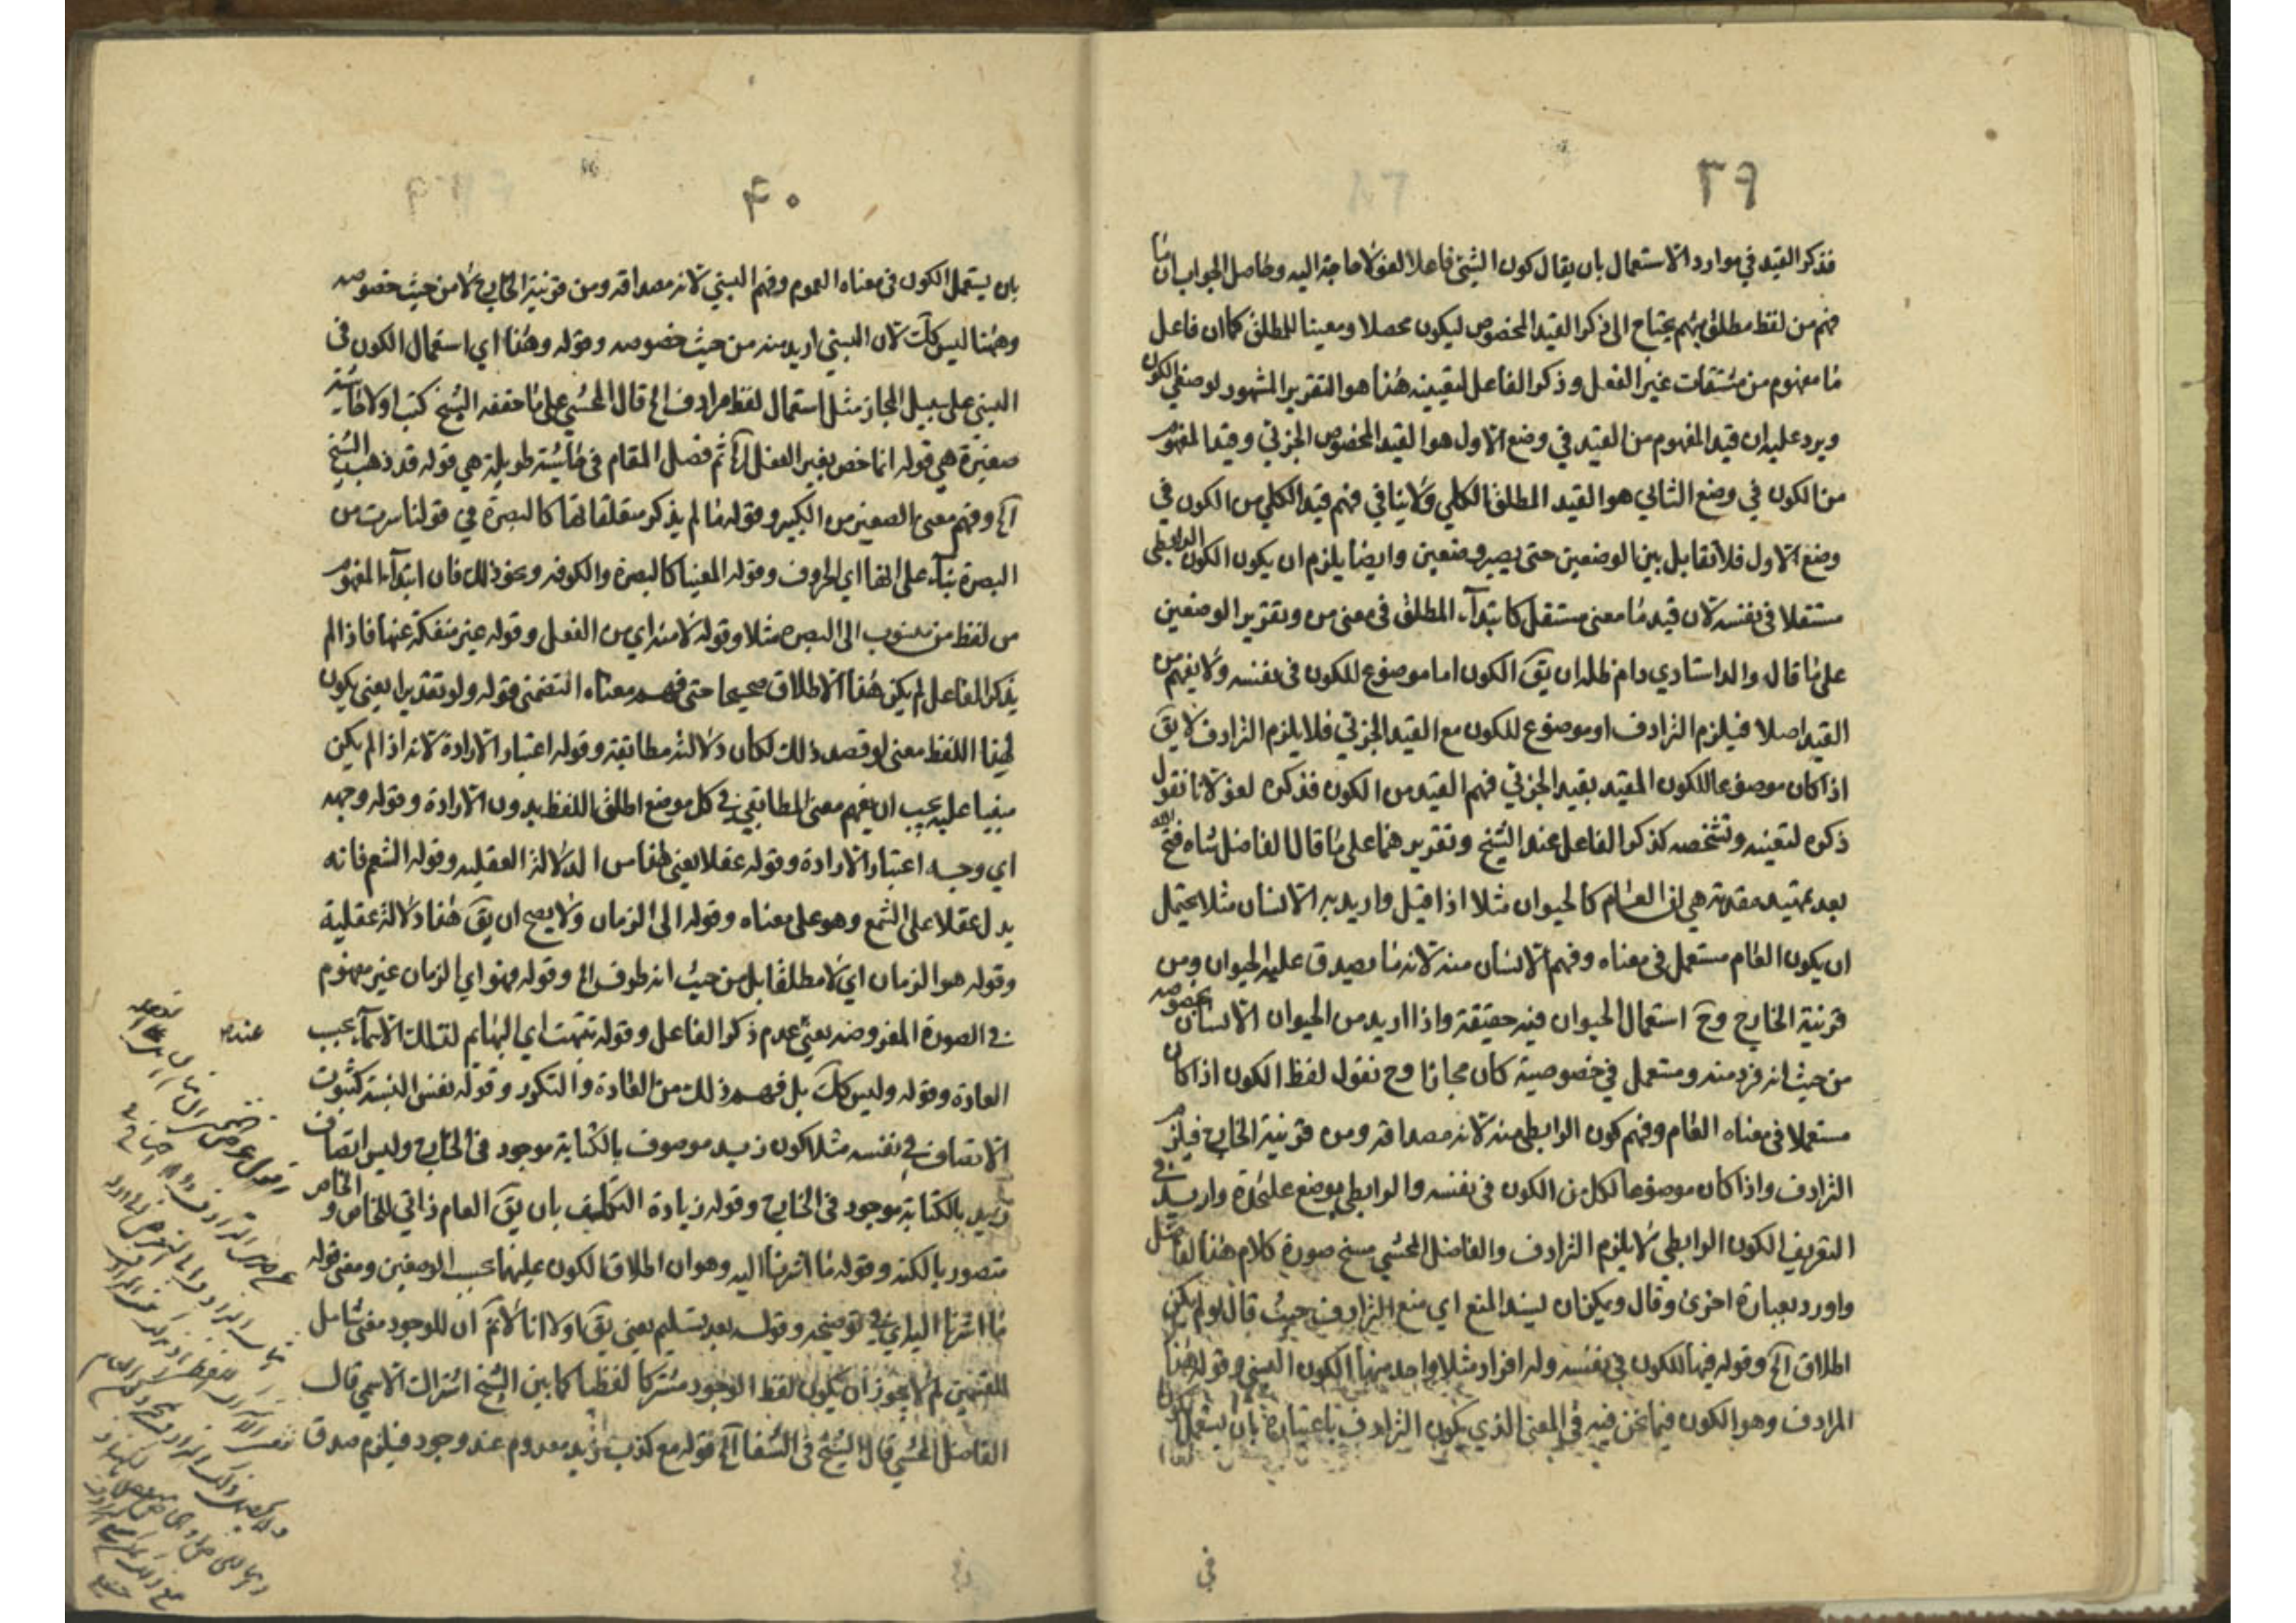 ٣٩
فذكر القيد في موارد الاستعمال بان يقال كون الشيئ فاعلا لغو لا حاجة اليه وحاصل الجواب ان ما
فهم من لفظ مطلق مبهم يحتاج الى ذكر القيد المخصوص ليكون محصلا ومعينا للمطلق كما ان فاعل
ما مفهوم من مشتقات غير الفعل وذكر الفاعل لتعيينه هذا هو التقرير المشهور لوضعي الكون
ويرد عليه ان قيد المفهوم من القيد في وضع الاول هو القيد المخصوص الجزئي وقيد المفهوم
من الكون في وضع الثاني هو القيد المطلق الكلي ولا ينافي فهم قيد الكلي من الكون في
وضع الاول فلا تقابل بين الوضعين حتى يصير وضعين وايضا يلزم ان يكون الكون الرابطي
مستقلا في نفسه لان قيد ما معنى مستقل كابتدآء المطلق في معنى من وتقرير الوضعين
على ما قال والد استادي دام ظله ان يق الكون اما موضوع للكون في نفسه ولا يفهم من
القيد اصلا فيلزم الترادف او موضوع للكون مع القيد الجزئي فلا يلزم الترادف لا يق
اذا كان موضوعا للكون المقيد بقيد الجزئي فهم القيد من الكون فذكره لغو لانا نقول
ذكره لتعينه وتشخصه كذكر الفاعل عند الشيخ وتقريرهما على ما قال الفاضل شاه فتح الله
بعد تمهيد مقدمة هي ان العام كالحيوان مثلا اذا قيل واريد به الانسان مثلا يحتمل
ان يكون العام مستعمل في معناه وفهم الانسان منه لانه ما يصدق عليه الحيوان ومن
قرينة الخارج وح استعمال الحيوان فيه حقيقة واذا اريد من الحيوان الانسان بخصوصه
من حيث انه فرد منه ومستعمل في خصوصية كان مجازا وح نقول لفظ الكون اذا كان
مستعملا في معناه العام وفهم كون الرابطي منه لانه مصداقه ومن قرينة الخارج فيلزم
الترادف واذا كان موضوعا لكل من الكون في نفسه والرابطي بوضع عليحدة واريد في
التعريف الكون الرابطي لا يلزم الترادف والفاضل المحشي مسخ صورة كلام هذا الفاضل
واورد بعبارة اخرى وقال ويمكن ان يسند المنع اي منع الترادف حيث قال لو لم يكن
اطلاق آلخ وقوله فيها للكون في نفسه وله افراد مثلا واحد منها الكون النسبي وقوله هذا
المرادف وهو الكون فيما نحن فيه في المعنى الذي يكون الترادف باعتباره بان يستعمل
في
٤٠
بان يستعمل الكون في معناه العموم وفهم النسبي لانه مصداقه ومن قرينة الخارج لا من حيث خصوصه
وههنا ليس كك لان النسبي اريد منه من حيث خصوصه وقوله وهذا اي استعمال الكون في
النسبي على سبيل المجاز مثل استعمال لفظ مرادف الخ قال المحشي على ما حققه الشيخ كتب اولا حاشية
صغيرة هي قوله انما خص بغير الفعل آلخ ثم فصل المقام في حاشية طويلة هي قوله قد ذهب الشيخ
آلخ وفهم معنى الصغير من الكبير وقوله ما لم يذكر متعلقاتها كالبصرة في قولنا سرت من
البصرة بنآء على انها اي الحروف وقوله المعينا كالبصرة والكوفه ونحو ذلك فان ابتدآء المفهوم
من لفظ من منسوب الى البصره مثلا وقوله لا منه اي من الفعل وقوله غير منفكة عنها فاذا لم
يذكر الفاعل لم يكن هذا الاطلاق صحيحا حتى فهم معناه التضمني قوله ولو تقديرا يعني يكون
لهذا اللفظ معنى لو قصد ذلك لكان دلالته مطابقة وقوله اعتبار الارادة لانه اذا لم يكن
مبنيا عليه يجب ان يفهم معنى المطابقي في كل موضع اطلق اللفظ بدون الارادة وقوله وجهه
اي وجه اعتبار الارادة وقوله عقلا يعني هذا من الدلالة العقليه وقوله الشمع فانه
يدل عقلا على الشمع وهو على معناه وقوله الى الزمان ولا يصح ان يق هذا دلالة عقلية
وقوله هو الزمان اي لا مطلقا بل من حيث انه ظرف الخ وقوله فهو اي الزمان غير مفهوم
في الصورة المفروضه يعني عدم ذكر الفاعل وقوله تنهت اي البهايم لتلك الاسمآء بحب
العادة وقوله وليس كك بل فهم ذلك من العادة والتكرر وقوله نفس النسبة كثبوت
الاتصاف في نفسه مثلا كون زيد موصوف بالكتابة موجود في الخارج وليس اتصاف
زيد بالكتابة موجود في الخارج وقوله زيادة التكليف بان يق العام ذاتي للخاص و الخاص
متصور بالكنه وقوله ما اشرنا اليه وهو ان اطلاق الكون عليهما بحسب الوضعين ومعنى قوله
ما اشرنا اليه اي في توضيحه وقوله بعد تسليم يعني يق اولا انا لا نم ان للوجود معنى شامل
للقسمين لم لا يجوز ان يكون لفظ الوجود مشتركا لفظيا كما بين الشيخ اشتراك الاسمي قال
الفاضل المحشي قال الشيخ في الشفا آلخ قوله مع كذب زيد معدوم عند وجود فيلزم صدق
عنده